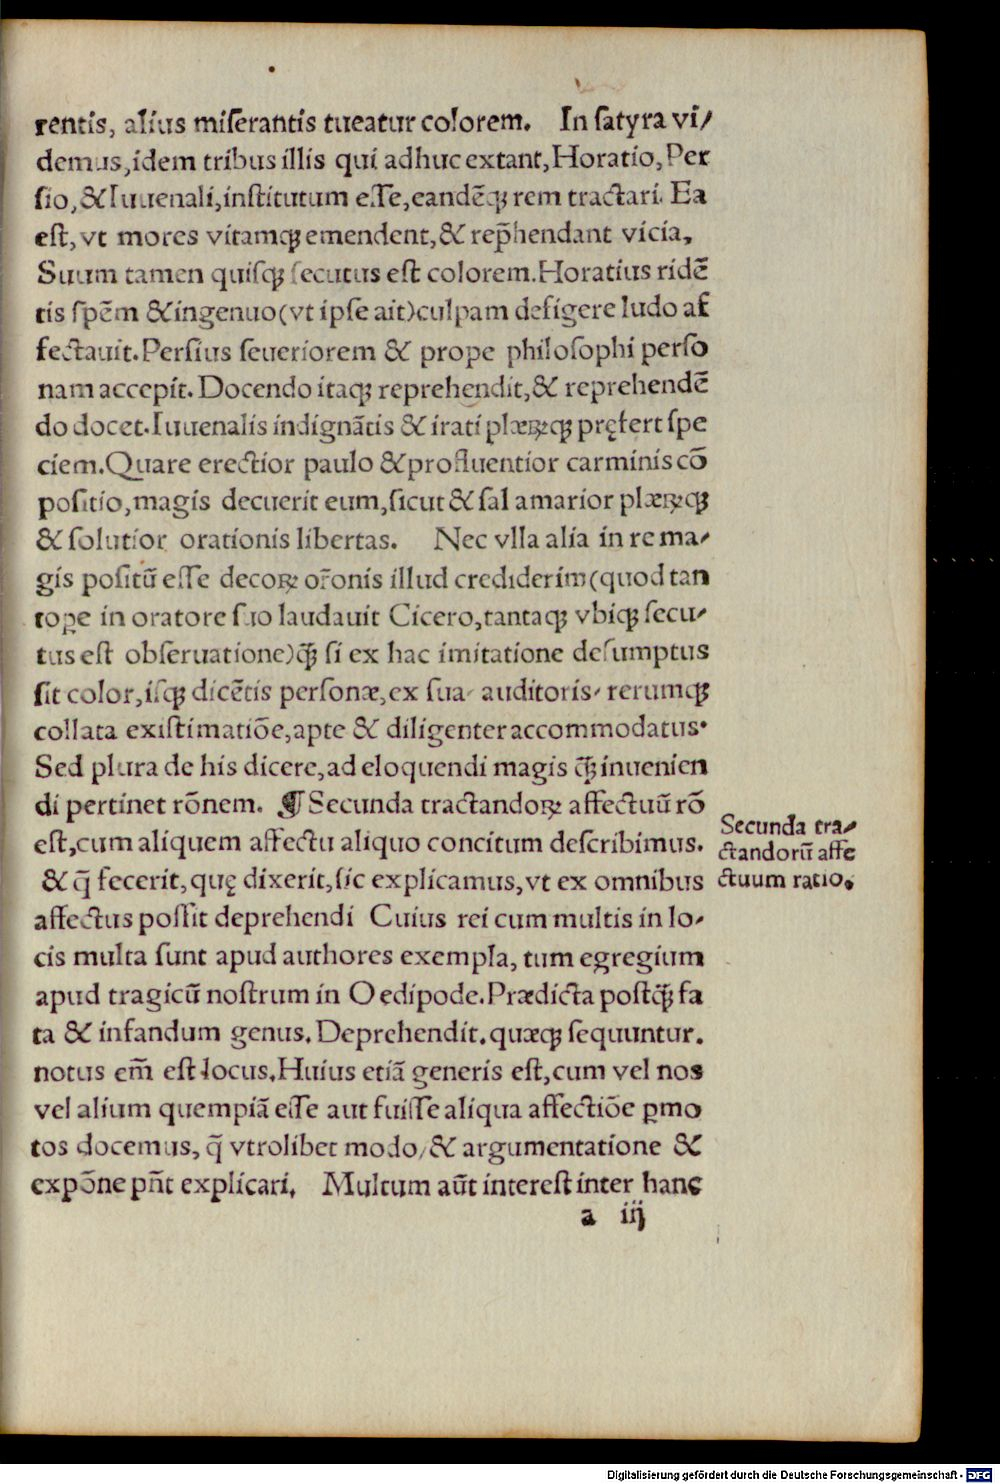 rentis, alius miſerantis tueatur colorem. In ſatyra vi/
demus,idem tribus illis qui adhuc extant,Horatio,Per
ſio,&Iuuenali,inſtitutum eſſe,eandēqꝫ rem tractari. Ea
eſt,vt mores vitamqꝫ emendent,& rep̄hendant vicia,
Suum tamen quiſqꝫ ſecutus eſt colorem.Horatius ridē
tis ſpēm &ingenuo(vt ipſe ait)culpam defigere ludo af
fectauit.Perſius ſeueriorem & prope philoſophi perſo
nam accepit. Docendo itaqꝫ reprehendit,& reprehendē
do docet.Iuuenalis indignātis & irati plærꝝqꝫ pręfert ſpe
ciem.Quare erectior paulo &profluentior carminis cō
poſitio,magis decuerit eum,ſicut & ſal amarior plærꝝqꝫ
& ſolutior orationis libertas. Nec vlla alia in re ma/
gis poſitū eſſe decoꝝ or̄onis illud crediderim(quod tan
tope in oratore ſuo laudauit Cicero,tantaqꝫ vbiqꝫ ſecu/
tus eſt obſeruatione)qꝫ̄ ſi ex hac imitatione deſumptus
ſit color,iſqꝫ dicētis perſonæ,ex ſua/ auditoris/ rerumqꝫ
collata exiſtimatiōe,apte & diligenter accommodatus.
Sed plura de his dicere,ad eloquendi magis qꝫ̄ inuenien
di pertinet rōnem. ¶ Secunda tractandoꝝ affectuū rō
eſt,cum aliquem affectu aliquo concitum deſcribimus.
& q̄ fecerit,quę dixerit,ſic explicamus,vt ex omnibus
affectus poſſit deprehendi Cuius rei cum multis in lo/
cis multa ſunt apud authores exempla, tum egregium
apud tragicū noſtrum in Oedipode.Prædicta poſtqꝫ̄ fa
ta & infandum genus. Deprehendit.quæqꝫ ſequuntur.
notus em̄ eſt locus.Huius etiā generis eſt,cum vel nos
vel alium quempiā eſſe aut fuiſſe aliqua affectiōe ꝑmo
tos docemus, q̄ vtrolibet modo/ & argumentatione &
expōne pn̄t explicari. Multum aūt intereſt inter hanc
a iij
Secunda tra/
ctandorū affe
ctuum ratio.
Digitalisierung gefördert durch die Deutsche Forschungsgemeinschaft - DFG